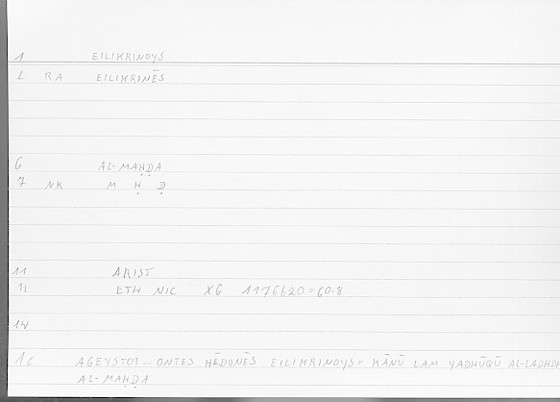 1 EILIKRINOYS
2 RA EILIKRINĒS
6 AL-MAḤḌA
7 NK M Ḥ Ḍ
11 ARIST
12 ETH NIC X6 1176b20 = 60.8
14
16 AGEYSTOI - ONTES HĒDONĒS EILIKRINOYS = KĀNŪ LAM YADHŪQŪ
AL-MAḤḌA